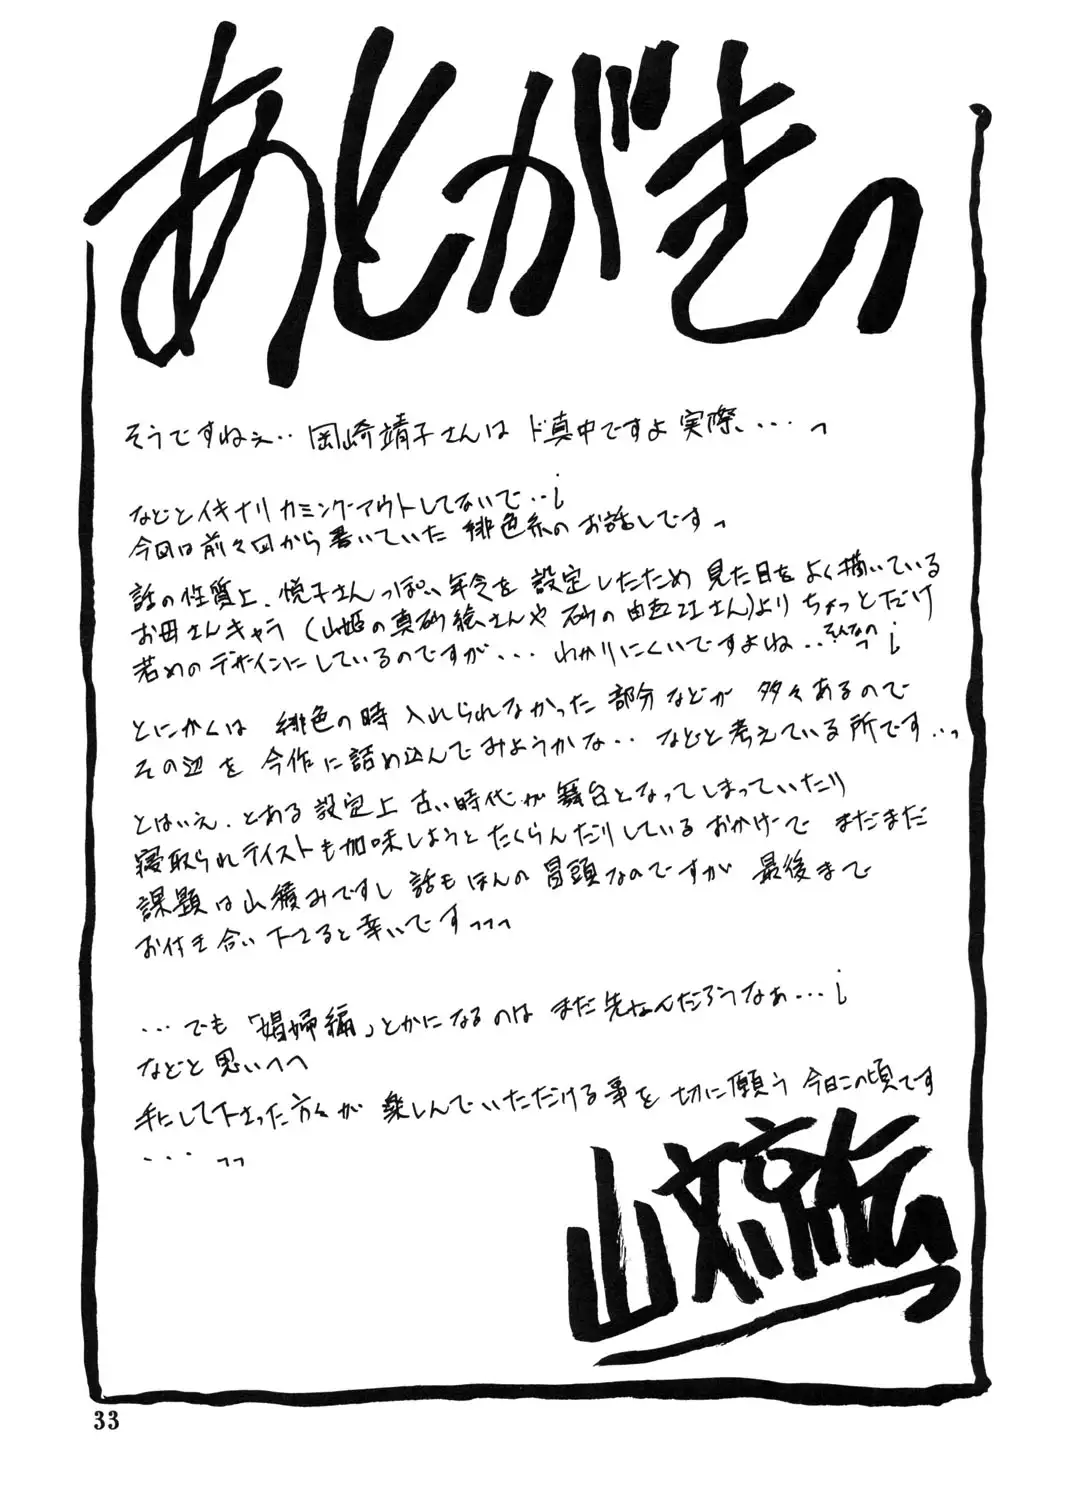 あとがきっ
そうですねぇ‥岡崎靖子さんはド真中ですよ実際、‥‥っ
などとイキナリカミングアウトしてないで‥¡
今回は前々回から書いていた緋色系のお話しですっ
話の性質上、悦子さんっぽい年令を設定したため見た目をよく描いている
お母さんキャラ(山姫の真砂絵さんや砂の由五江さん)よりちょっとだけ
若めのデザインにしているのですが‥‥わかりにくいですよね‥そんなのっ¡
とにかくは緋色の時入れられなかった部分などが多々あるので
その辺を今作に詰め込んでみようかな‥などと考えている所です‥っ
とはいえ、とある設定上古い時代が舞台となってしまっていたり
寝取られテイストも加味しようとたくらんだりしているおかげでまだまだ
課題は山積みですし話もほんの冒頭なのですが最後まで
お付き合い下さると幸いですっっっ
‥‥でも「娼婦編」とかになるのはまだ先なんだろうなぁ‥‥¡
などと思いつつ
手にして下さった方々が楽しんでいただける事を切に願う今日この頃です
‥‥っっ
山文京伝
33